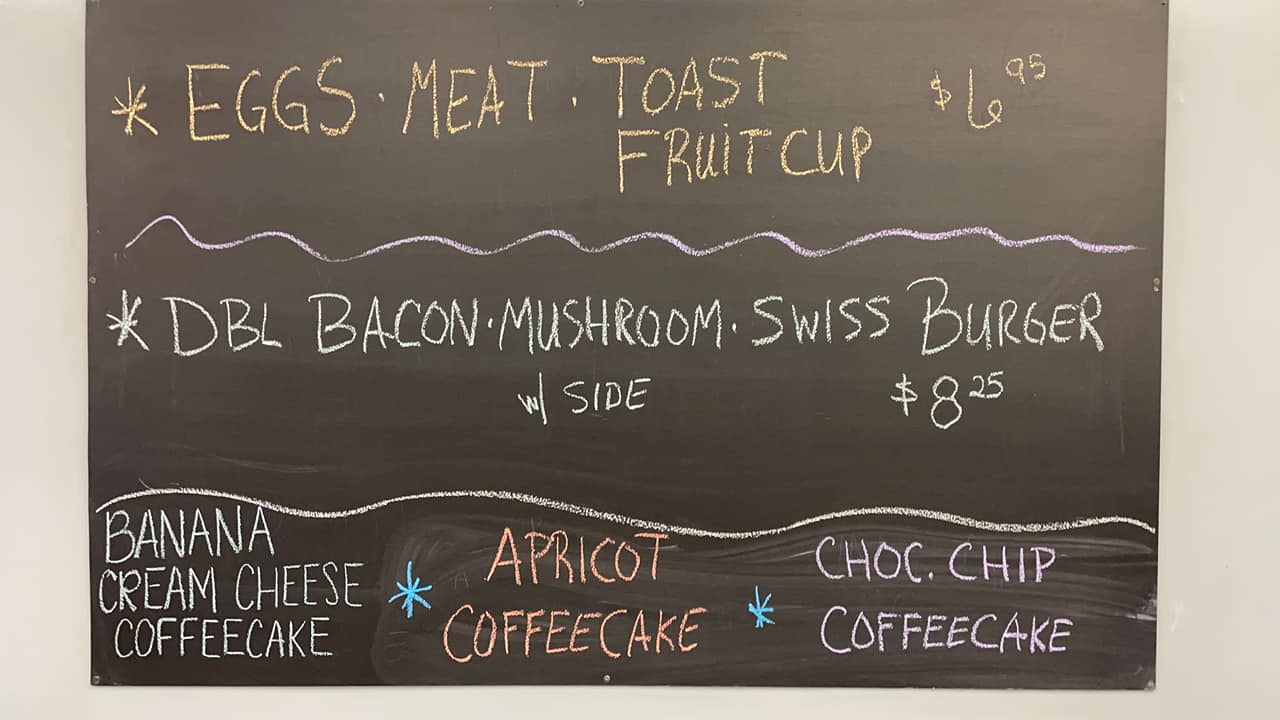 * EGGS · MEAT · TOAST $6.95
FRUIT CUP
* DBL BACON · MUSHROOM · SWISS BURGER
w/ SIDE $8.25
BANANA
CREAM CHEESE
COFFEECAKE
* APRICOT
COFFEECAKE
* CHOC. CHIP
COFFEECAKE